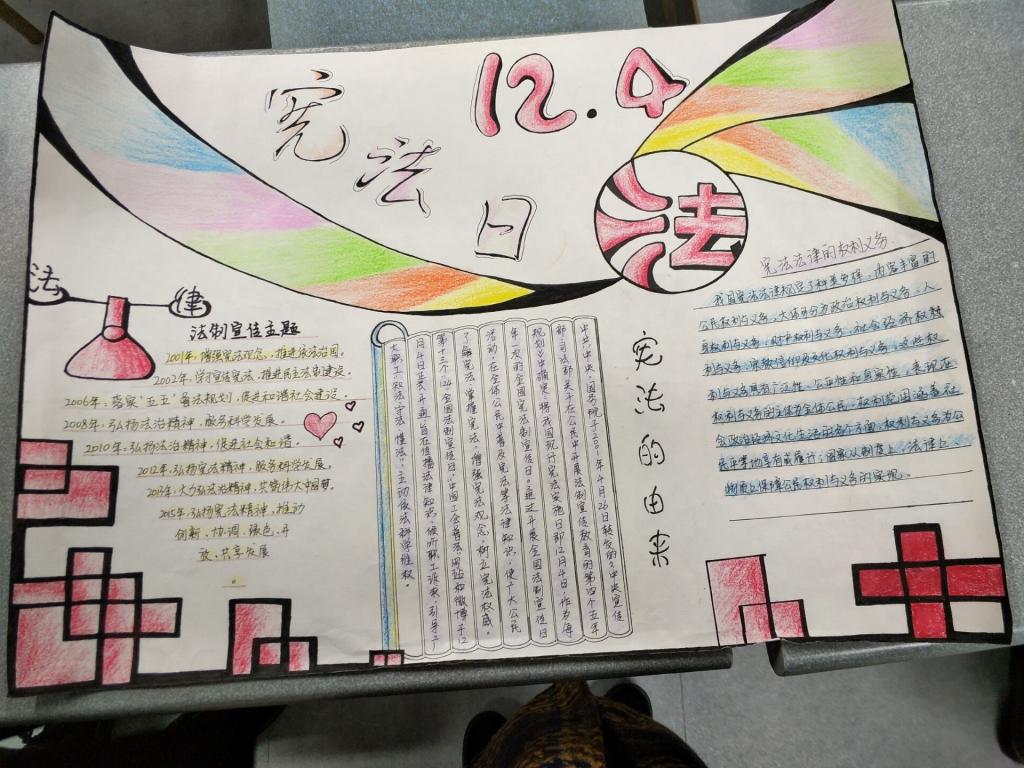 宪法日
12.4
法
法 律
法制宣传主题
2001年，增强宪法观念，推进依法治国。
2002年，学习宣传宪法，推进民主法制建设。
2006年、落实“五五”普法规划，促进和谐社会建设。
2008年：弘扬法治精神，服务科学发展。
2010年：弘扬法治精神，促进社会和谐。
2012年：弘扬宪法精神，服务科学发展。
2013年、大力弘法治精神，共筑伟大中国梦。
2015年、弘扬宪法精神，推动
创新、协调、绿色、开
放、共享发展
宪法的由来
中共中央、国务院于2001年4月26日转发的《中央宣传
部司法部关于在公民中开展法制宣传教育的第四个五年
规划》中确定：将我国现行宪法实施日即12月4日，作为每
年一次的全国宪法制宣传日。通过开展全国法制宣传日
活动，在全体公民中普及宪法等法律知识，使广大公民
了解宪法、掌握宪法、增强宪法观念，树立宪法权威。
第十三个“12·4全国法制宣传日”中国工会普法网站和微博于12
月4日正式开通，旨在传播法律知识，倾听职工诉求，引导广
大职工“学法、守法、懂法”，主动依法科学维权。
宪法法律的权利义务
我国宪法法律规定了种类多样、内容丰富的
公民权利与义务，大体可分为政治权利与义务、人
身权利与义务、财产权利与义务、社会经济权
利与义务、宗教信仰及文化权利与义务。这些权
利与义务具有广泛性、公平性和真实性，表现在
权利与义务的主体为全体公民，权利范围涵盖社
会政治经济文化生活的各个方面；权利与义务为公
民平等地享有或履行；国家从制度上、法律上、
物质上保障公民权利与义务的实现。